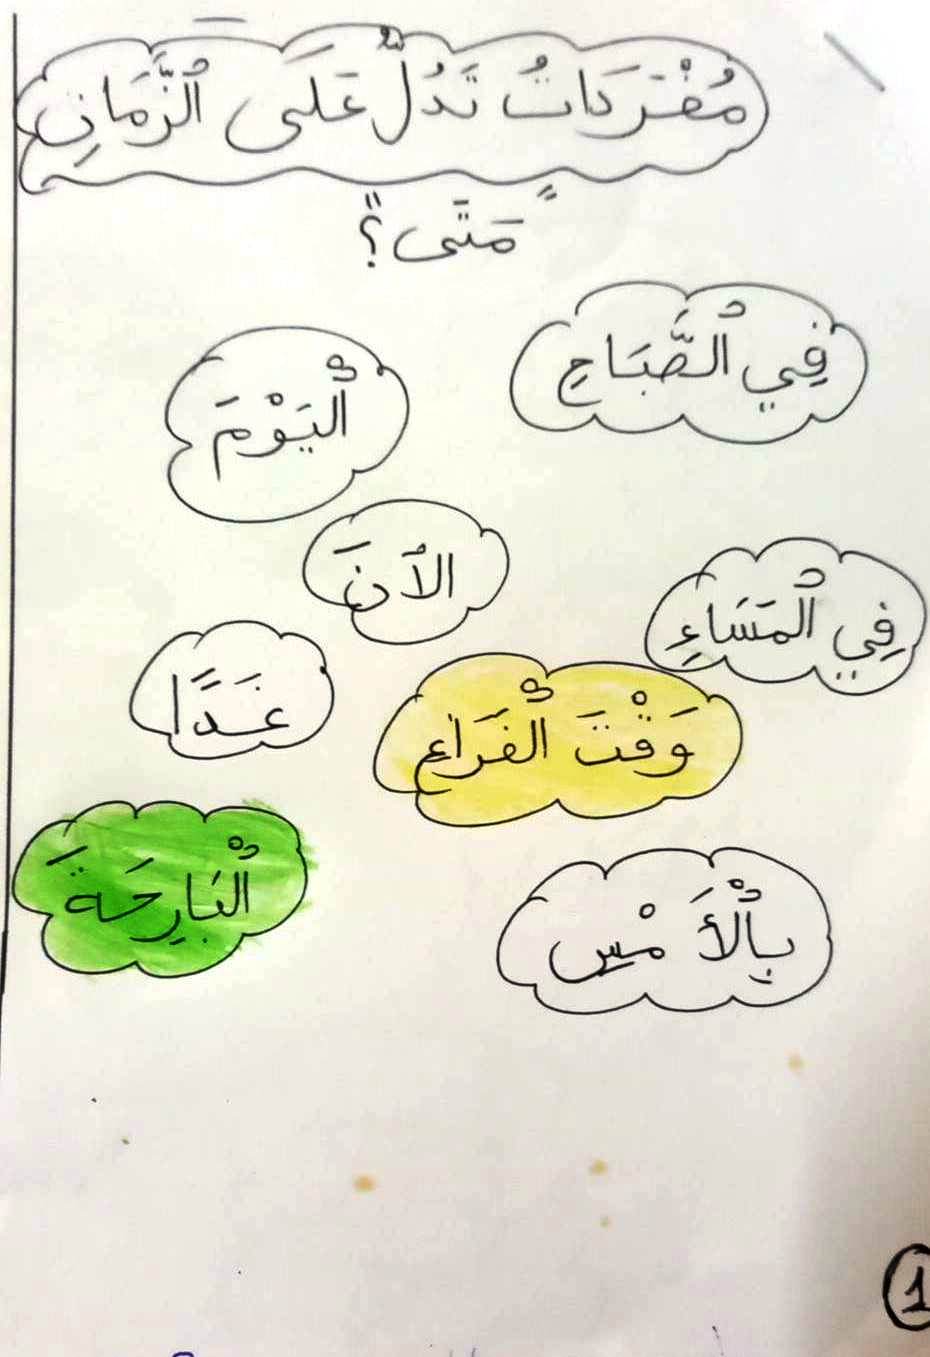 مُفْرَدَاتٌ تَدُلُّ عَلَى ٱلزَّمَانِ
مَتَى؟
فِي ٱلصَّبَاحِ
ٱلْيَوْمَ
الآنَ
فِي ٱلْمَسَاءِ
غَدًا
وَقْتَ ٱلْفَرَاغِ
ٱلْبَارِحَةَ
بِٱلْأَمْسِ
1